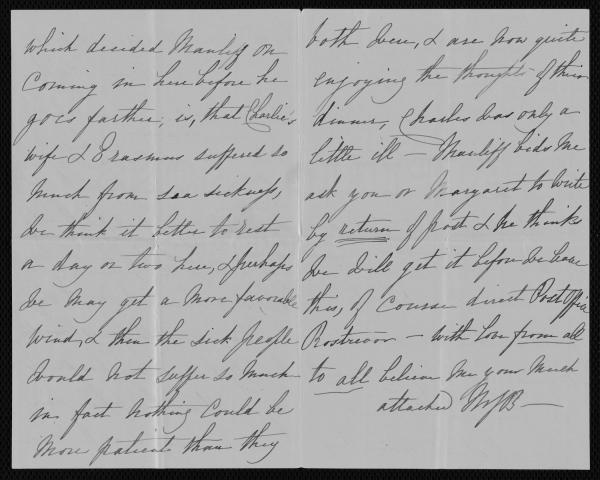 which decided Manliff on
coming in here before he
goes farther, is, that Charlie's
wife & Erasmus suffered so
much from sea sickness,
we think it better to rest
a day or two here, & perhaps
we may get a more favorable
wind, & then the sick people
would not suffer so much
in fact nothing could be
more patient than they
both were, & are now quite
enjoying the thoughts of their
dinner, Charles was only a
little ill — Manliff bids me
ask you or Margaret to write
by return of post & he thinks
we will get it before we leave
this, of course direct Post Office
Rostrevor — with love from all
to all believe me your much
attached MJB —